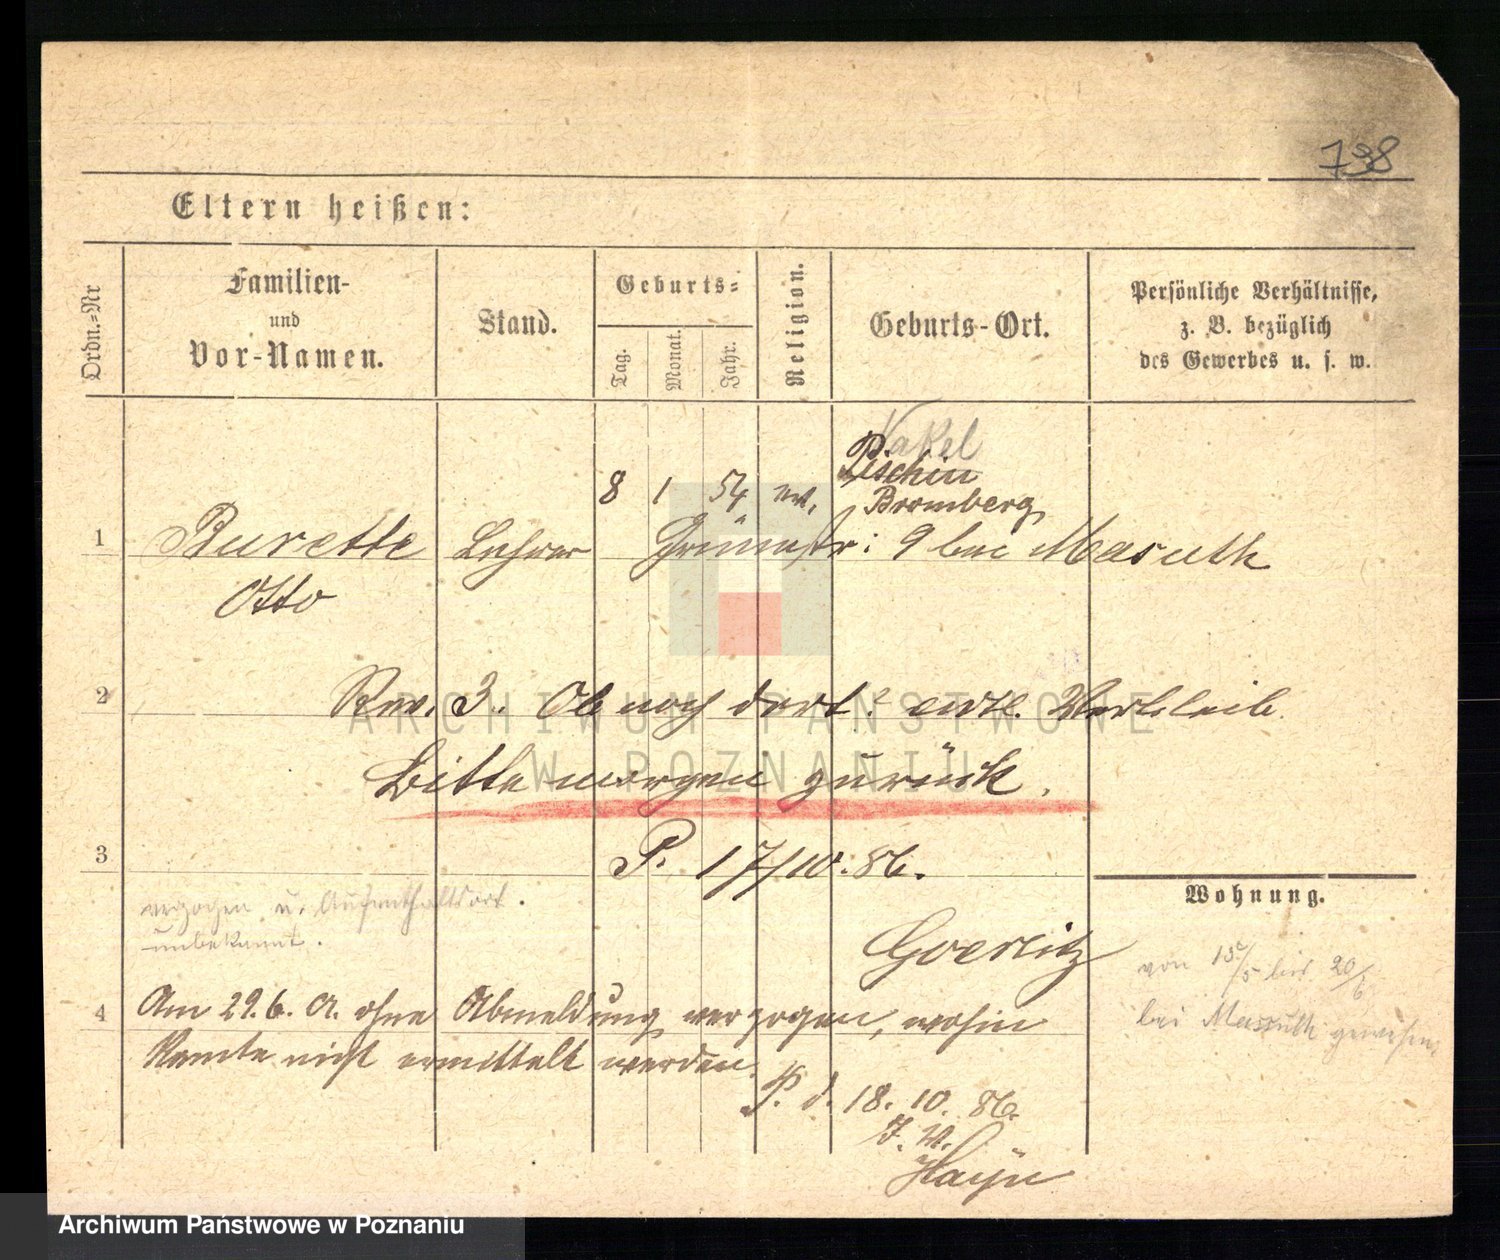 738
Eltern heißen:
Ordn.-Nr
Familien-
und
Vor-Namen.
Stand.
Geburts-
Tag.
Monat.
Jahr.
Religion.
Geburts-Ort.
Persönliche Verhältnisse,
z. B. bezüglich
des Gewerbes u. s. w.
Nakel
P.
Lischin
8 1 54 ev.
Bromberg
1 Burette Lehrer Grünestr: 9 bei Masuth
Otto
2 Rev. 3. Ob noch dort? evtl. Verbleib.
Bitte morgen zurück.
3 P. 17/10. 86.
Wohnung.
verzogen u. Aufenthaltsort.
unbekannt.
Goerlitz
von 15/5 bis 20/6
bei Massuth gewesen
4 Am 29. 6. a. ohne Abmeldung verzogen, wohin
konnte nicht ermittelt werden.
P. d. 18. 10. 86.
J. V.
Hayn
ARCHIWUM PAŃSTWOWE
W POZNANIU
Archiwum Państwowe w Poznaniu